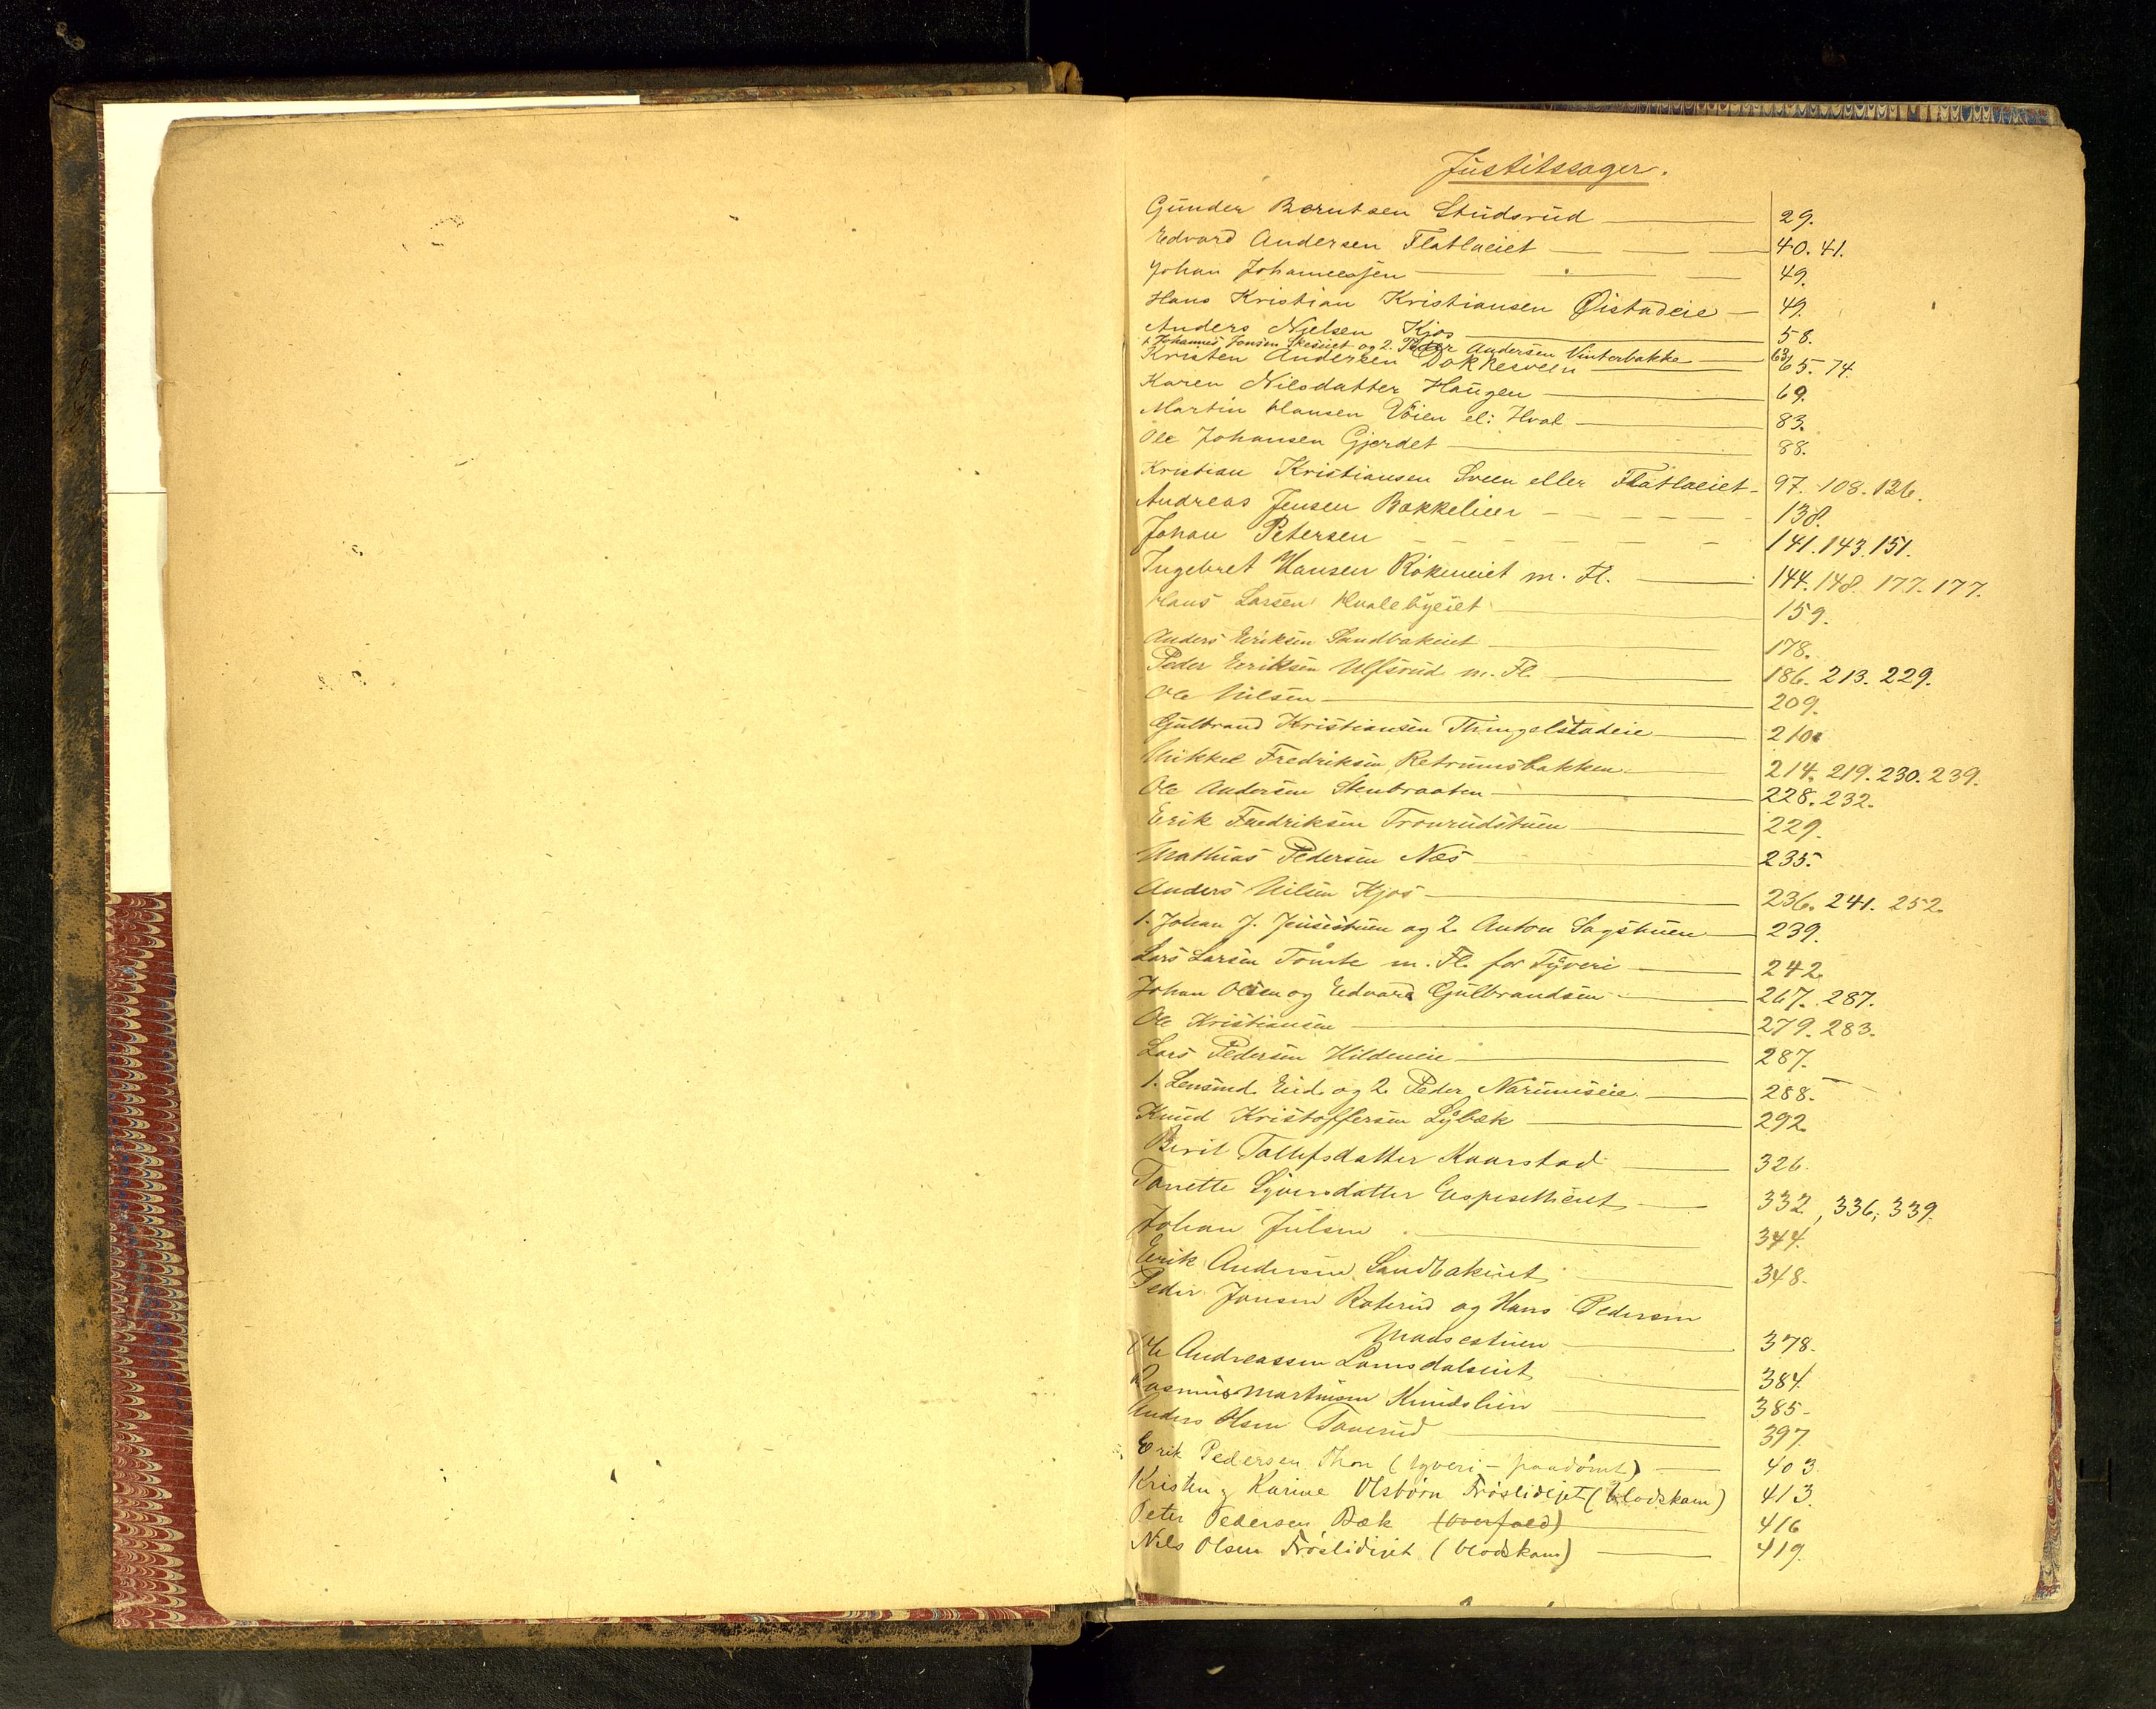 Justitssager.
Gunder Berntsen Studsrud — 29.
Edvard Andersen Flatlaeiet — 40. 41.
Johan Johannessen — 49.
Hans Kristian Kristiansen Øistadeie — 49.
Anders Nielsen Kjos — 58.
1. Johannes Jonsen og 2. Peder Andersen Vinterbakke — 63
Kristen Andersen Dokkesveen — 65. 74.
Karen Nilsdatter Haugen — 69.
Martin Hansen Vöien el: Hval — 83.
Ole Johansen Gjerdet — 88.
Kristian Kristiansen Sveen eller Flatlaeiet — 97. 108. 126.
Andreas Jensen Bakkelien — 138.
Johan Petersen — 141. 143. 151.
Ingebret Hansen Rökeneiet m. Fl. — 144. 148. 177. 177.
Hans Larsen Hvalebyeiet — 159.
Anders Eriksen Sandbakeiet — 178.
Peder Eriksen Ulfsrud m. Fl. — 186. 213. 229.
Ole Nilsen — 209.
Gulbrand Kristiansen Thingelstadeie — 210.
Mikkel Fredriksen Retrumsbakken — 214. 219. 230. 239.
Ole Andersen Stenbraaten — 228. 232.
Erik Fredriksen Tronrudstuen — 229.
Mathias Pedersen Næs — 235.
Anders Nilsen Kjos — 236. 241. 252.
1. Johan J. og 2. Anton Sagstuen — 239.
Lars Larsen Tömte m. Fl. for Tyveri — 242.
Johan Olsen og Edvard Gulbrandsen — 267. 287.
Ole Kristiansen — 279. 283.
Lars Pedersen Hildeneie — 287.
1. Lensmd. Eid og 2. Peder Narumseie — 288.
Knud Kristoffersen Lybæk — 292.
Berit Tollefsdatter Kaarstad — 326.
Torrette Syversdatter — 332, 336, 339.
Johan Julsen — 344.
Erik Andersen Sandbakeiet — 348.
Peder Jonsen Roterud og Hans Pedersen
Monsestuen — 378.
Ole Andreassen Lomsdalseiet — 384.
Rasmus Martinsen Knudslien — 385.
Anders Olsen — 397.
Erik Pedersen Thon (tyveri — paadömt) — 403.
Kristen & Karine Olsbörn Fröslidejet (blodskam) — 413.
Peter Pedersen Bæk (overfald) — 416
Nils Olsen Fröslidejet (blodskam) — 419.